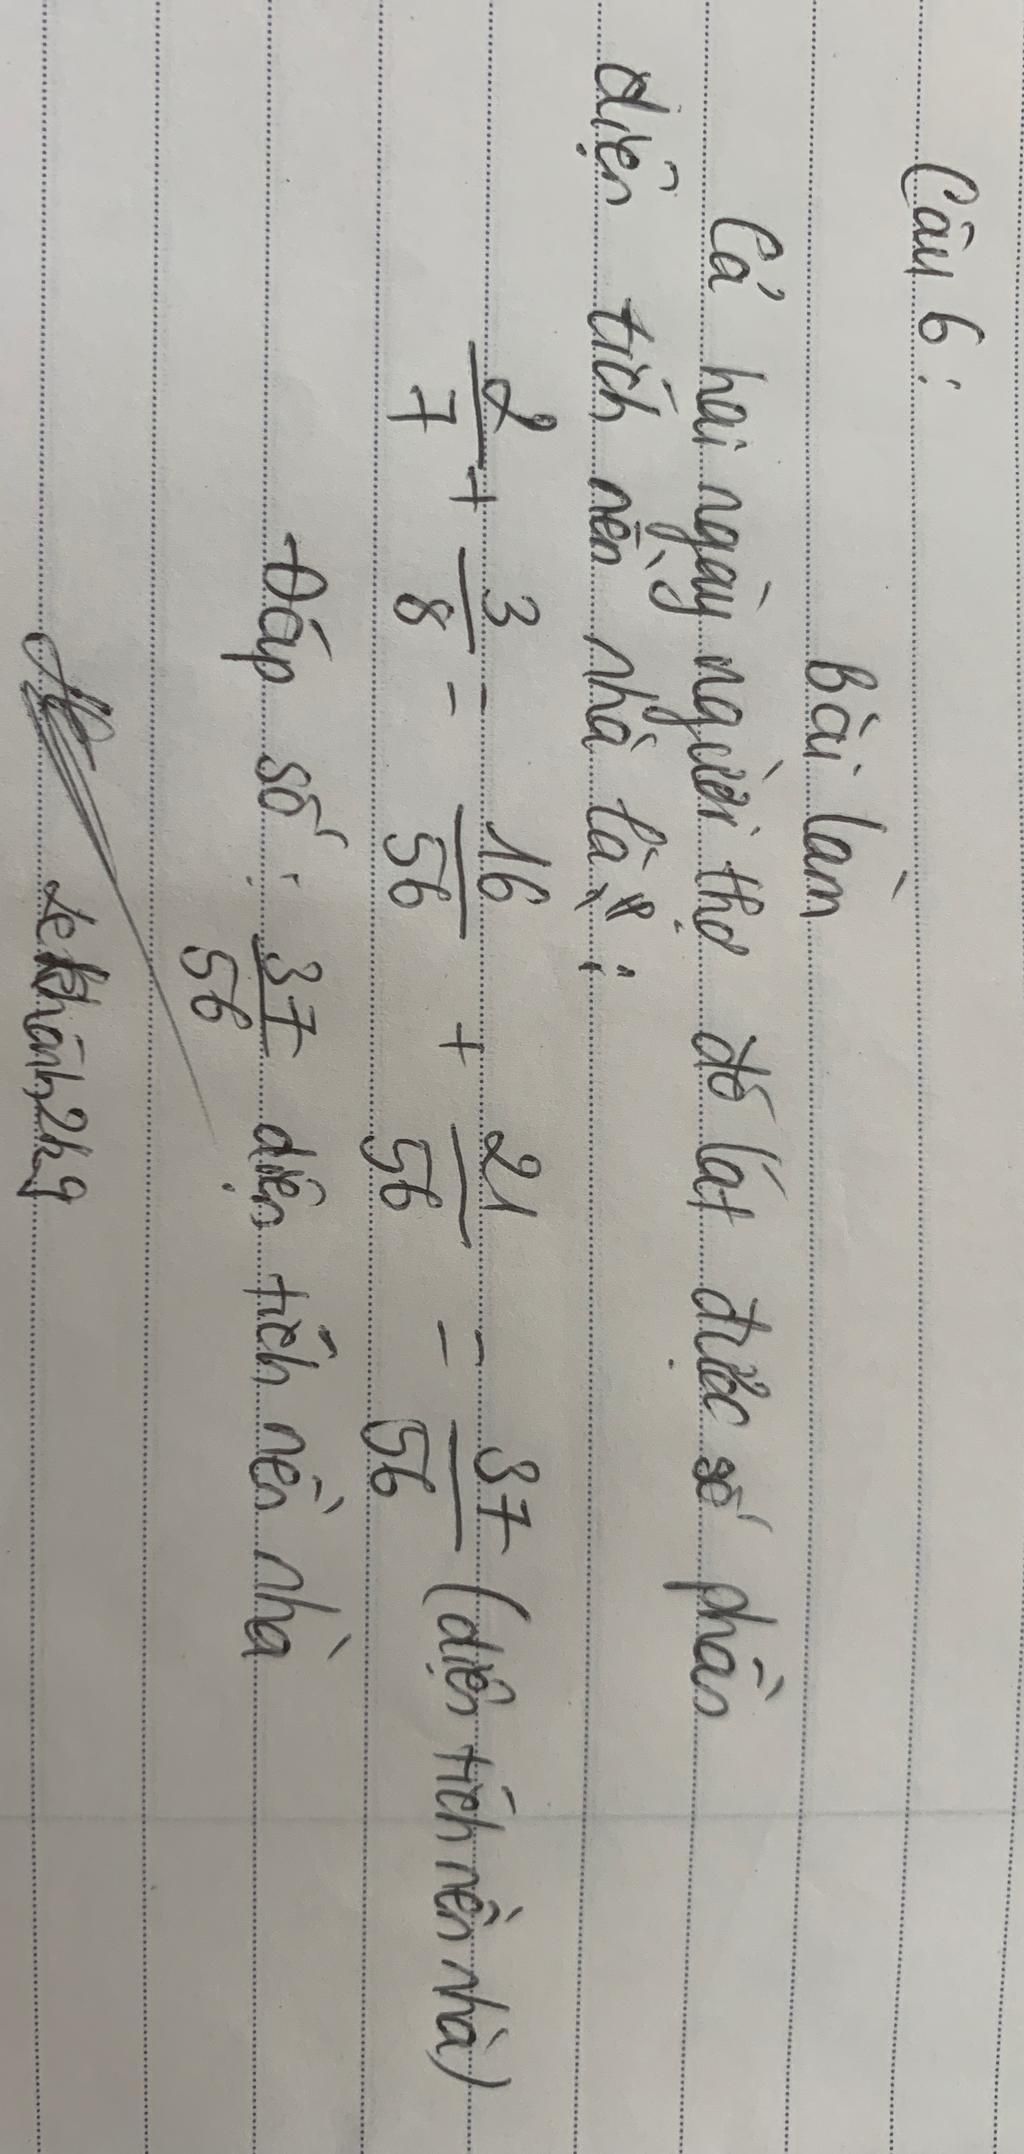 Câu 6:
Bài làm
Cả hai ngày người thợ đó lát được số phần
diện tích nền nhà là:
2/7 + 3/8 = 16/56 + 21/56 = 37/56 (diện tích nền nhà)
Đáp số: 37/56 diện tích nền nhà